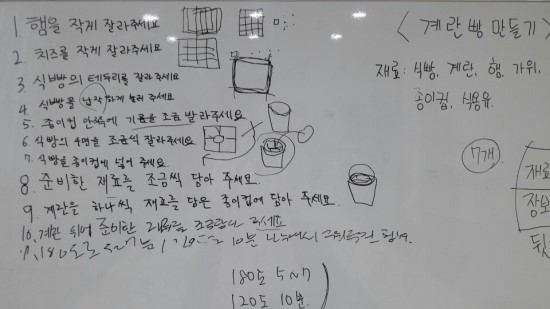 1. 햄을 작게 잘라주세요
2. 치즈를 작게 잘라주세요
3. 식빵의 테두리를 잘라주세요
4. 식빵을 납작하게 눌러 주세요
5. 종이컵 안쪽에 기름을 조금 발라주세요.
6. 식빵의 4면을 조금씩 잘라주세요
7. 식빵을 종이컵에 넣어 주세요.
8. 준비한 재료를 조금씩 담아 주세요.
9. 계란을 하나씩 재료를 담은 종이컵에 담아 주세요.
10. 계란 위에 준비한 재료를 조금 주세요
11. 180도로 5~7분, 120도로 10분
180도 5~7
120도 10분
<계란빵 만들기>
재료: 식빵, 계란, 햄, 가위,
종이컵, 식용유
7개
재료
장보
뒷